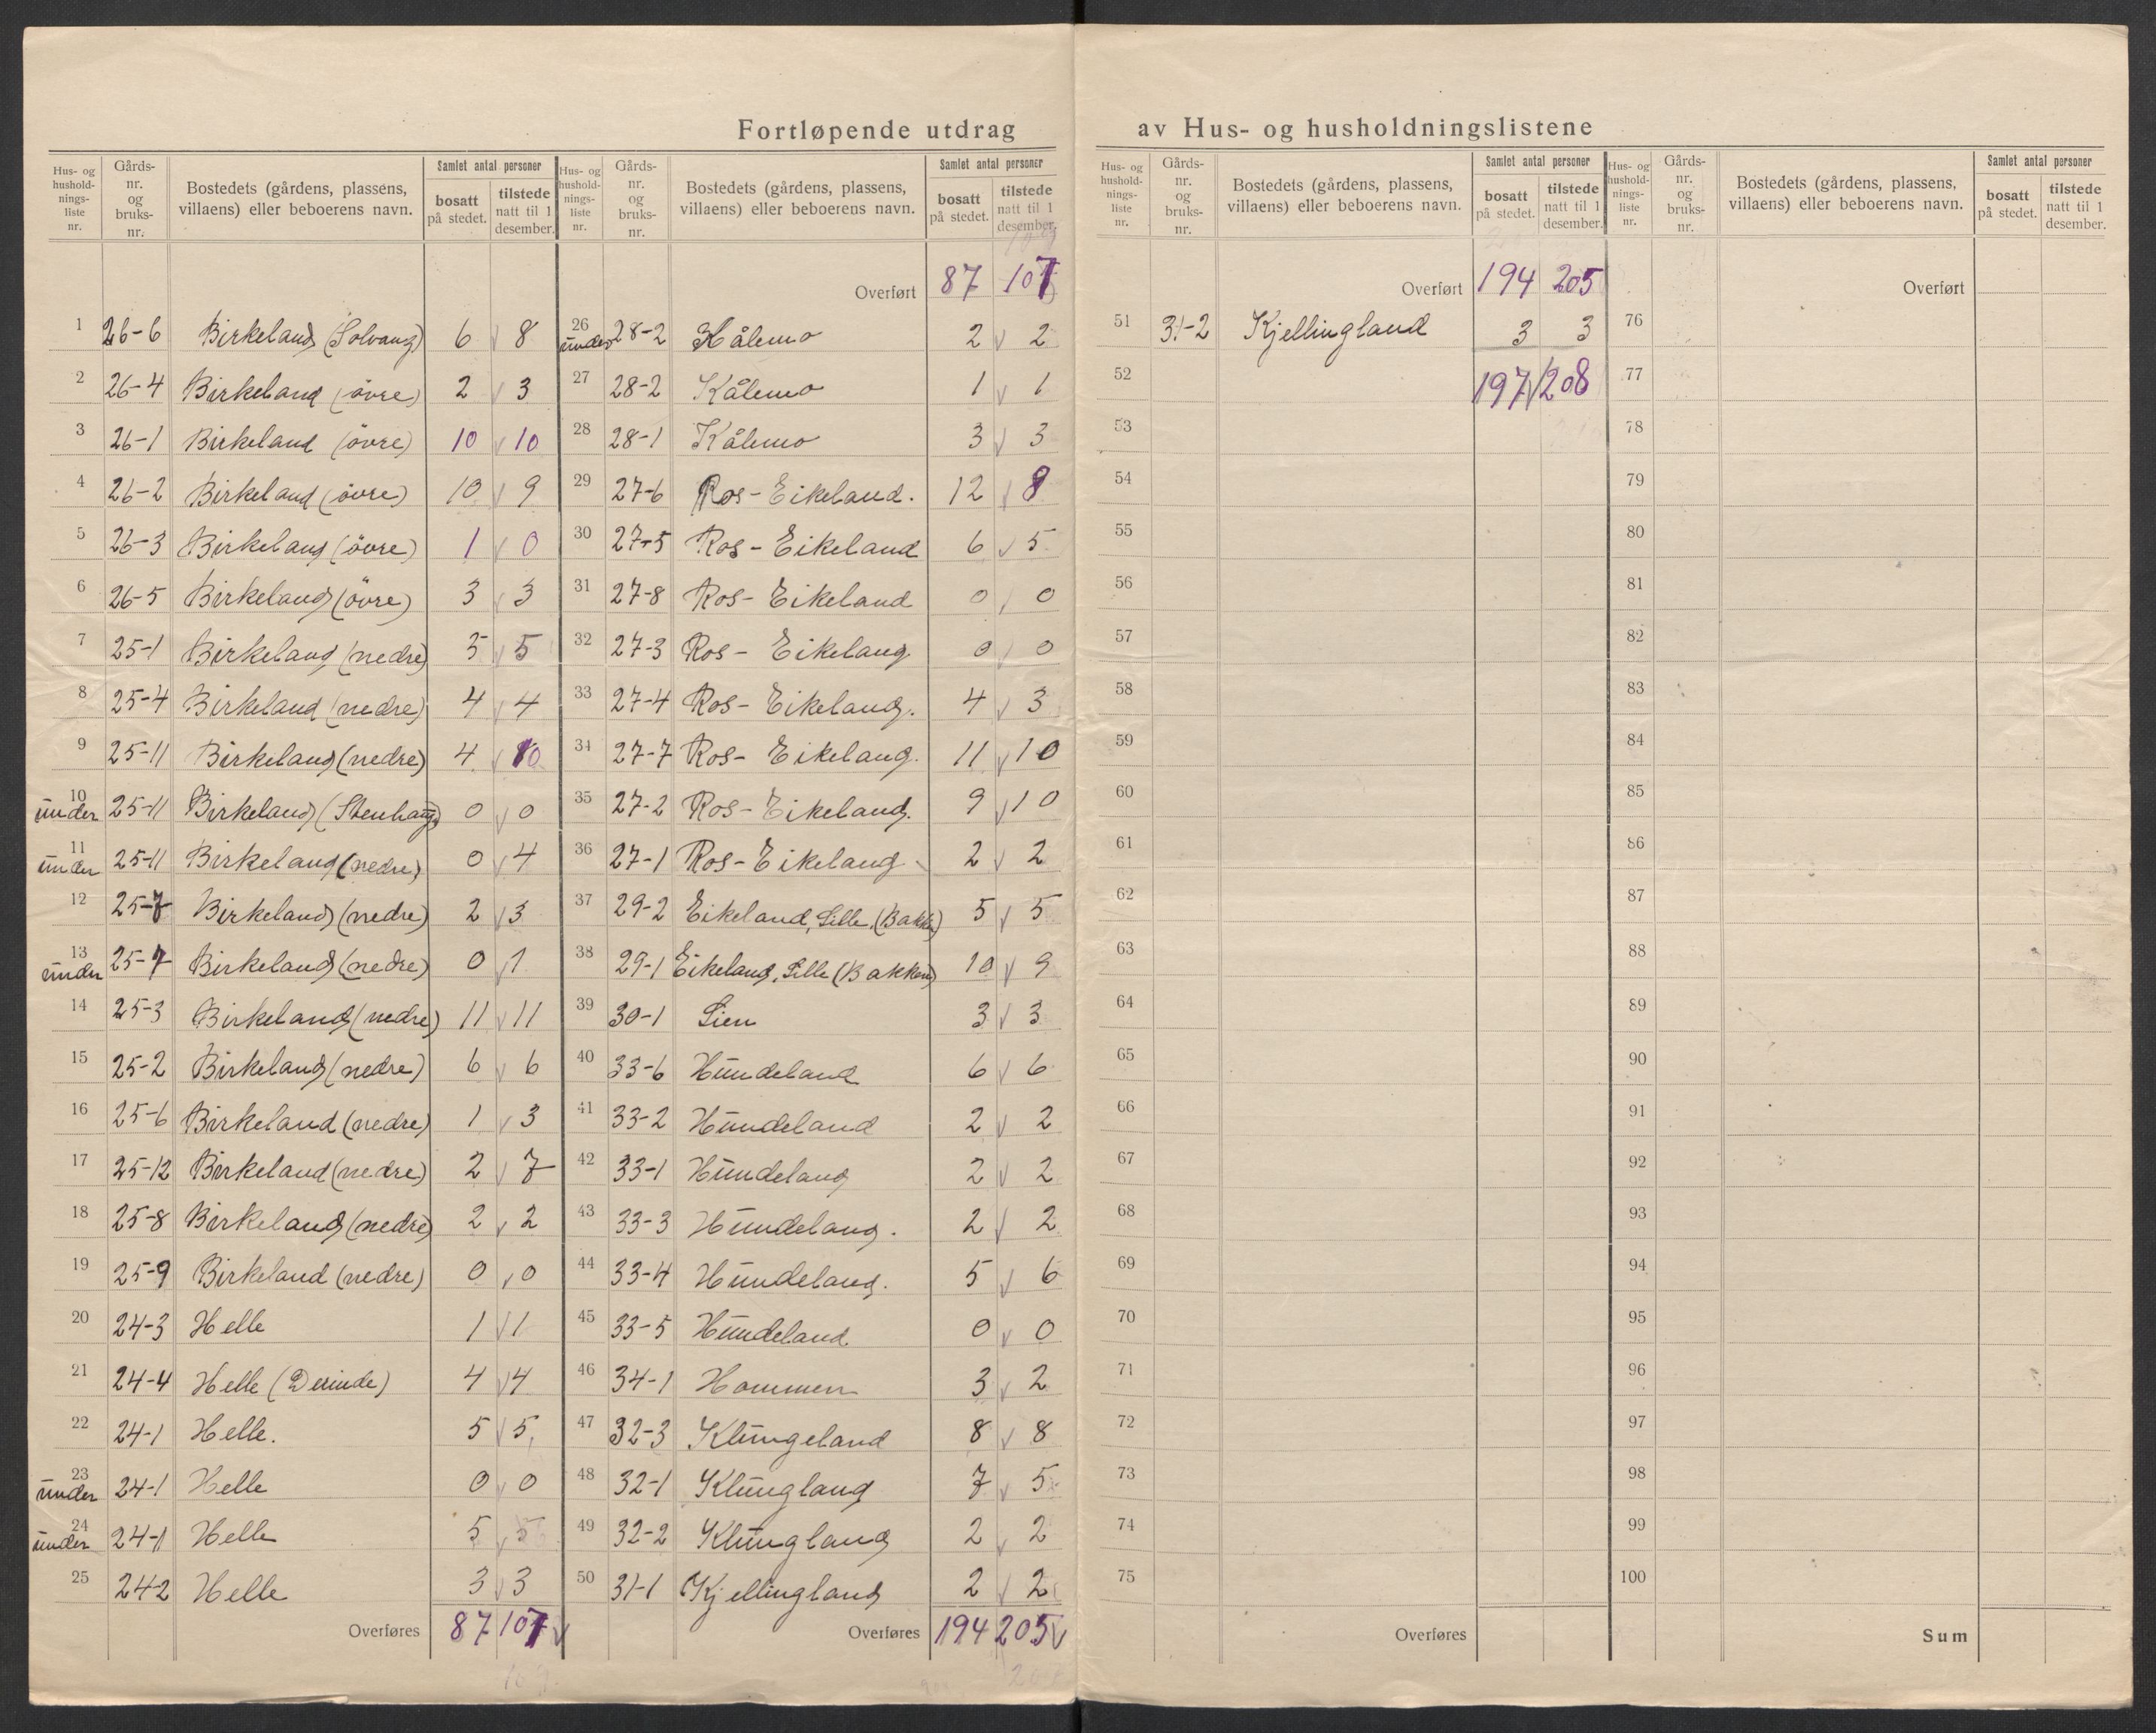 Fortløpende utdrag av Hus- og husholdningslistene
Hus- og husholdnings-liste nr. | Gårds-nr. og bruks-nr. | Bostedets (gårdens, plassens, villaens) eller beboerens navn. | Samlet antal personer | bosatt på stedet. | tilstede natt til 1 desember.
1 26-6 Birkeland (Solvang) 6 8
2 26-4 Birkeland (øvre) 2 3
3 26-1 Birkeland (övre) 10 10
4 26-2 Birkeland (övre) 10 9
5 26-3 Birkeland (övre) 1 0
6 26-5 Birkeland (övre) 3 3
7 25-1 Birkeland (nedre) 5 5
8 25-4 Birkeland (nedre) 4 4
9 25-11 Birkeland (nedre) 4 10
10 under 25-11 Birkeland (Stenhaug) 0 0
11 under 25-11 Birkeland (nedre) 0 4
12 25-7 Birkeland (nedre) 2 3
13 under 25-7 Birkeland (nedre) 0 1
14 25-3 Birkeland (nedre) 11 11
15 25-2 Birkeland (nedre) 6 6
16 25-6 Birkeland (nedre) 1 3
17 25-12 Birkeland (nedre) 2 7
18 25-8 Birkeland (nedre) 2 2
19 25-9 Birkeland (nedre) 0 0
20 24-3 Helle 1 1
21 24-4 Helle 4 4
22 24-1 Helle. 5 5
23 under 24-1 Helle 0 0
24 under 24-1 Helle 5 5
25 24-2 Helle 3 3
Overføres 87 107
Hus- og husholdnings-liste nr. | Gårds-nr. og bruks-nr. | Bostedets (gårdens, plassens, villaens) eller beboerens navn. | Samlet antal personer | bosatt på stedet. | tilstede natt til 1 desember.
Overført 87 107
26 under 28-2 Kålemo 2 2
27 28-2 Kålemo 1 1
28 28-1 Kålemo 3 3
29 27-6 Ros-Eikeland. 12 8
30 27-5 Ros-Eikeland 6 5
31 27-8 Ros-Eikeland 0 0
32 27-3 Ros-Eikeland 0 0
33 27-4 Ros-Eikeland. 4 3
34 27-7 Ros-Eikeland. 11 10
35 27-2 Ros-Eikeland. 9 10
36 27-1 Ros-Eikeland 2 2
37 29-2 Eikeland, Lille, (Bakken) 5 5
38 29-1 Eikeland, Lille (Bakken) 10 9
39 30-1 Lien 3 3
40 33-6 Hundeland 6 6
41 33-2 Hundeland 2 2
42 33-1 Hundeland 2 2
43 33-3 Hundeland. 2 2
44 33-4 Hundeland. 5 6
45 33-5 Hundeland 0 0
46 34-1 Hommen 3 2
47 32-3 Klungeland 8 8
48 32-1 Klungland 7 5
49 32-2 Klungland 2 2
50 31-1 Kjellingland 2 2
Overføres 194 205
Hus- og husholdnings-liste nr. | Gårds-nr. og bruks-nr. | Bostedets (gårdens, plassens, villaens) eller beboerens navn. | Samlet antal personer | bosatt på stedet. | tilstede natt til 1 desember.
Overført 194 205
51 31-2 Kjellingland 3 3
52 197 208
53
54
55
56
57
58
59
60
61
62
63
64
65
66
67
68
69
70
71
72
73
74
75
Overføres
Hus- og husholdnings-liste nr. | Gårds-nr. og bruks-nr. | Bostedets (gårdens, plassens, villaens) eller beboerens navn. | Samlet antal personer | bosatt på stedet. | tilstede natt til 1 desember.
Overført
76
77
78
79
80
81
82
83
84
85
86
87
88
89
90
91
92
93
94
95
96
97
98
99
100
Sum